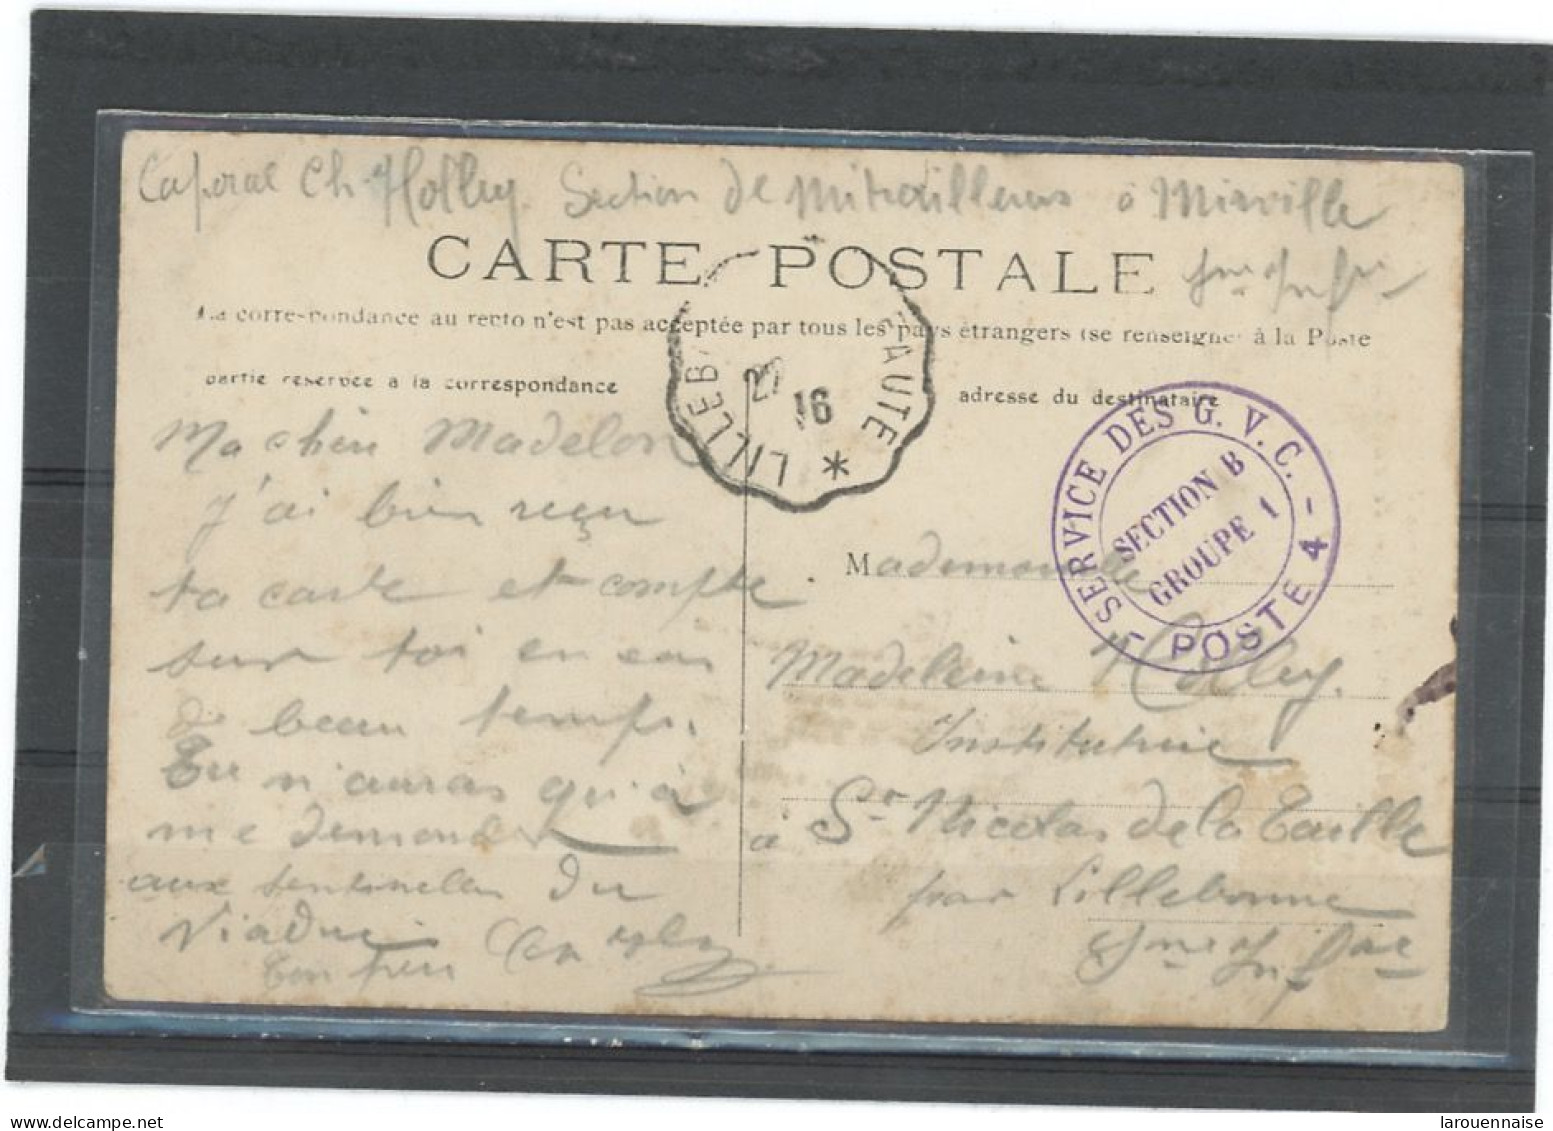 Caporal Ch Holley Section de Mitrailleurs à Mirville
Sne Inf re
CARTE POSTALE
La correspondance au recto n'est pas acceptée par tous les pays étrangers (se renseigner à la Poste
partie réservée à la correspondance
adresse du destinataire
LILLEB
EAUTE
27
16
*
SERVICE DES G. V. C.
SECTION B
GROUPE 1
- POSTE 4 -
Ma chère Madelon
J'ai bien reçu
ta carte et compte
sur toi en cas
de beau temps.
Tu n'auras qu'à
me demander
aux sentinelles du
Viaduc
Ton père Ch Holley
Mademoiselle
Madeleine Holley.
Institutrice
à St Nicolas de la Taille
par Lillebonne
Sne Inf re
larouennaise